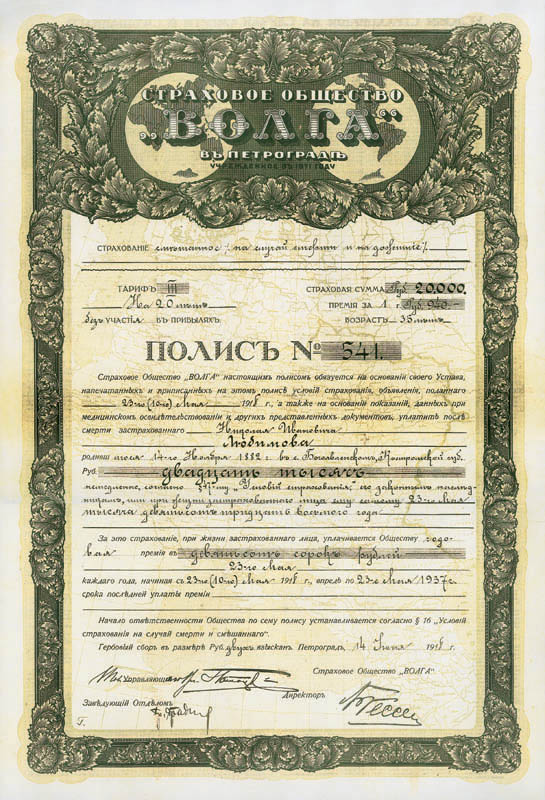 СТРАХОВОЕ ОБЩЕСТВО
„ВОЛГА“
ВЪ ПЕТРОГРАДѢ
УЧРЕЖДЕННОЕ ВЪ 1871 ГОДУ
СТРАХОВАНIЕ смѣшанное /на случай смерти и на дожитiе/.
ТАРИФЪ III СТРАХОВАЯ СУММА Руб. 20,000.
На 20 лѣтъ ПРЕМIЯ ЗА 1 г. Руб. 940.-
безъ УЧАСТIЯ ВЪ ПРИБЫЛЯХЪ. ВОЗРАСТЪ 35 лѣтъ
ПОЛИСЪ № 541.
Страховое Общество „ВОЛГА“ настоящимъ полисомъ обязуется на основанiи своего Устава,
напечатанныхъ и приписанныхъ на этомъ полисѣ условiй страхованiя, объявленiя, поданнаго
23-го (10-го) Мая 1918 г., а также на основанiи показанiй, данныхъ при
медицинскомъ освидѣтельствованiи и другихъ представленныхъ документовъ, уплатить послѣ
смерти застрахованнаго Николая Ивановича
Любимова
родившагося 14-го Ноября 1882 г. въ с. Богоявленскомъ, Костромской губ.
Руб. двадцать тысячъ
немедленно, согласно § „Условiй страхованiя“, его законнымъ наслѣд-
никамъ, или при жизни застрахованнаго лица ему самому 23-го Мая
тысяча девятьсотъ тридцать восьмого года.
За это страхованiе, при жизни застрахованнаго лица, уплачивается Обществу годо-
вая премiя въ девятьсотъ сорокъ рублей
23-го Мая
каждаго года, начиная съ 23-го (10-го) Мая 1918 г., впредь по 23-е Мая 1937 г.
срока послѣдней уплаты премiи
Начало отвѣтственности Общества по сему полису устанавливается согласно § 16 „Условiй
страхованiя на случай смерти и смѣшаннаго“.
Гербовый сборъ въ размѣрѣ Руб. двухъ взысканъ. Петроградъ, 14 Iюня 1918 г.
Страховое Общество „ВОЛГА“
Управляющiй
Директоръ
Завѣдующiй Отдѣломъ
Г.